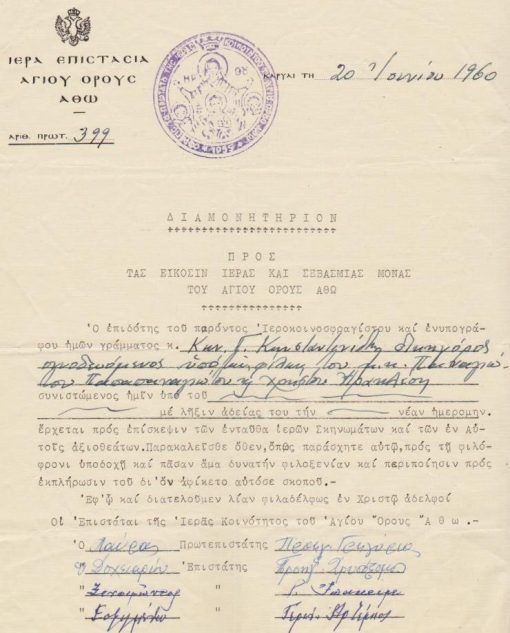 ΙΕΡΑ ΕΠΙΣΤΑΣΙΑ
ΑΓΙΟΥ ΟΡΟΥΣ
ΑΘΩ
ΑΡΙΘ. ΠΡΩΤ. 399
ΚΑΡΥΑΙ ΤΗ 20 Ἰουνίου 1960
ΔΙΑΜΟΝΗΤΗΡΙΟΝ
ΠΡΟΣ
ΤΑΣ ΕΙΚΟΣΙΝ ΙΕΡΑΣ ΚΑΙ ΣΕΒΑΣΜΙΑΣ ΜΟΝΑΣ
ΤΟΥ ΑΓΙΟΥ ΟΡΟΥΣ ΑΘΩ
Ὁ ἐπιδότης τοῦ παρόντος Ἱεροκοινοσφραγίστου καί ἐνυπογρά-
φου ἡμῶν γράμματος κ. Κων. Γ. Κωνσταντινίδης δικηγόρος
συνοδευόμενος ὑπό
συνιστώμενος ἡμῖν ὑπό τοῦ
μέ λῆξιν ἀδείας του τήν νέαν ἡμερομην.
ἔρχεται πρός ἐπίσκεψιν τῶν ἐνταῦθα ἱερῶν Σκηνωμάτων καί τῶν ἐν Αὐ-
τοῖς ἀξιοθεάτων.Παρακαλεῖσθε ὅθεν,ὅπως παράσχητε αὐτῷ,πρός τῇ φιλό-
φρονι ὑποδοχῇ καί πᾶσαν ἅμα δυνατήν φιλοξενίαν καί περιποίησιν πρός
ἐκπλήρωσιν τοῦ δι'ὅν ἀφίκετο αὐτόσε σκοποῦ.-
Ἐφ'ᾧ καί διατελοῦμεν λίαν φιλαδέλφως ἐν Χριστῷ ἀδελφοί
Οἱ Ἐπιστάται τῆς Ἱερᾶς Κοινότητος τοῦ Ἁγίου Ὄρους Ἄθω.-
Ὁ Λαύρας Πρωτεπιστάτης
Ὁ Δοχειαρίου Ἐπιστάτης
" Ξενοφῶντος "
" Ἐσφιγμένου "